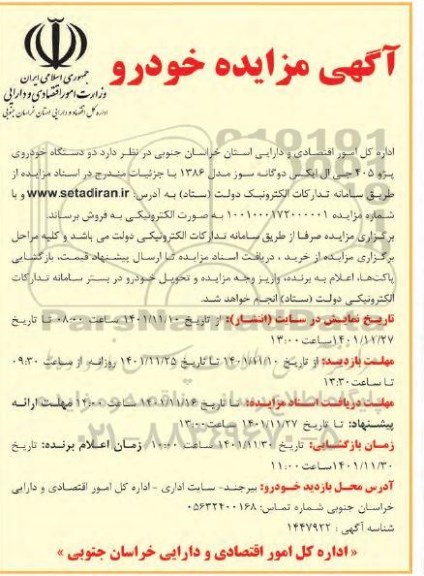 آگهی مزایده خودرو
جمهوری اسلامی ایران
وزارت امور اقتصادی و دارایی
اداره کل امور اقتصادی و دارایی استان خراسان جنوبی
اداره کل امور اقتصادی و دارایی استان خراسان جنوبی در نظر دارد دو دستگاه خودروی
پژو ۴۰۵ جی ال ایکس دوگانه سوز مدل ۱۳۸۶ با جزئیات مندرج در اسناد مزایده از
طریق سامانه تدارکات الکترونیک دولت (ستاد) به آدرس: www.setadiran.ir و با
شماره مزایده ۱۰۰۱۰۰۰۱۷۲۰۰۰۰۰۱ به صورت الکترونیکی به فروش برساند.
برگزاری مزایده صرفا از طریق سامانه تدارکات الکترونیکی دولت می باشد و کلیه مراحل
برگزاری مزایده از خرید ، دریافت اسناد مزایده تا ارسال پیشنهاد قیمت، بازگشایی
پاکت‌ها، اعلام به برنده، واریز وجه مزایده و تحویل خودرو در بستر سامانه تدارکات
الکترونیکی دولت (ستاد) انجام خواهد شد.
تاریخ نمایش در سایت (انتشار): از تاریخ ۱۴۰۱/۱۱/۱۰ ساعت ۰۸:۰۰ تا تاریخ
۱۴۰۱/۱۱/۲۷ساعت ۱۳:۰۰
مهلت بازدید: از تاریخ ۱۴۰۱/۱۱/۱۰ تا تاریخ ۱۴۰۱/۱۱/۲۵ روزانه از ساعت ۰۹:۳۰
تا ساعت۱۳:۳۰
مهلت دریافت اسناد مزایده: تا تاریخ ۱۴۰۱/۱۱/۱۶ ساعت ۱۴:۰۰ مهلت ارائه
پیشنهاد: تا تاریخ ۱۴۰۱/۱۱/۲۷ ساعت۱۳:۰۰
زمان بازگشایی: تاریخ ۱۴۰۱/۱۱/۳۰ ساعت ۱۰:۰۰ زمان اعلام برنده: تاریخ
۱۴۰۱/۱۱/۳۰ساعت ۱۱:۰۰
آدرس محل بازدید خودرو: بیرجند- سایت اداری -اداره کل امور اقتصادی و دارایی
خراسان جنوبی شماره تماس: ۰۵۶۳۲۴۰۰۱۶۸
شناسه آگهی : ۱۴۴۷۹۲۲
« اداره کل امور اقتصادی و دارایی خراسان جنوبی »